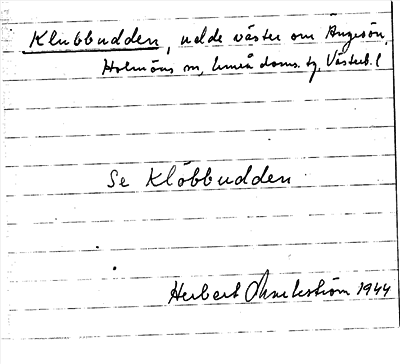 Klubbudden, udde väster om Ängesön,
Holmöns sn, Umeå doms. tg, Västerb. l
Se Klöbbudden
Herbert 1944